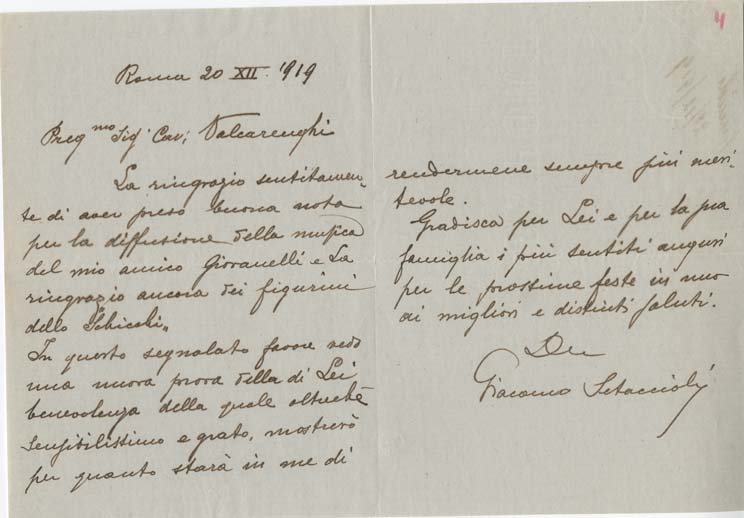 4
Roma 20 XII. 1919
Preg.mo Sig.r Cav. Valcarenghi
La ringrazio sentitamen-
te di aver preso buona nota
per la diffusione della musica
del mio amico Giovanelli e La
ringrazio ancora dei figurini
dello Schicchi.
In questo segnalato favore vedo
una nuova prova della di Lei
benevolenza della quale oltrechè
sensibilissimo e grato, mostrerò
per quanto starà in me di
rendermene sempre più meri-
tevole.
Gradisca per Lei e per la sua
famiglia i più sentiti auguri
per le prossime feste in uno
ai migliori e distinti saluti.
Giacomo Setaccioli